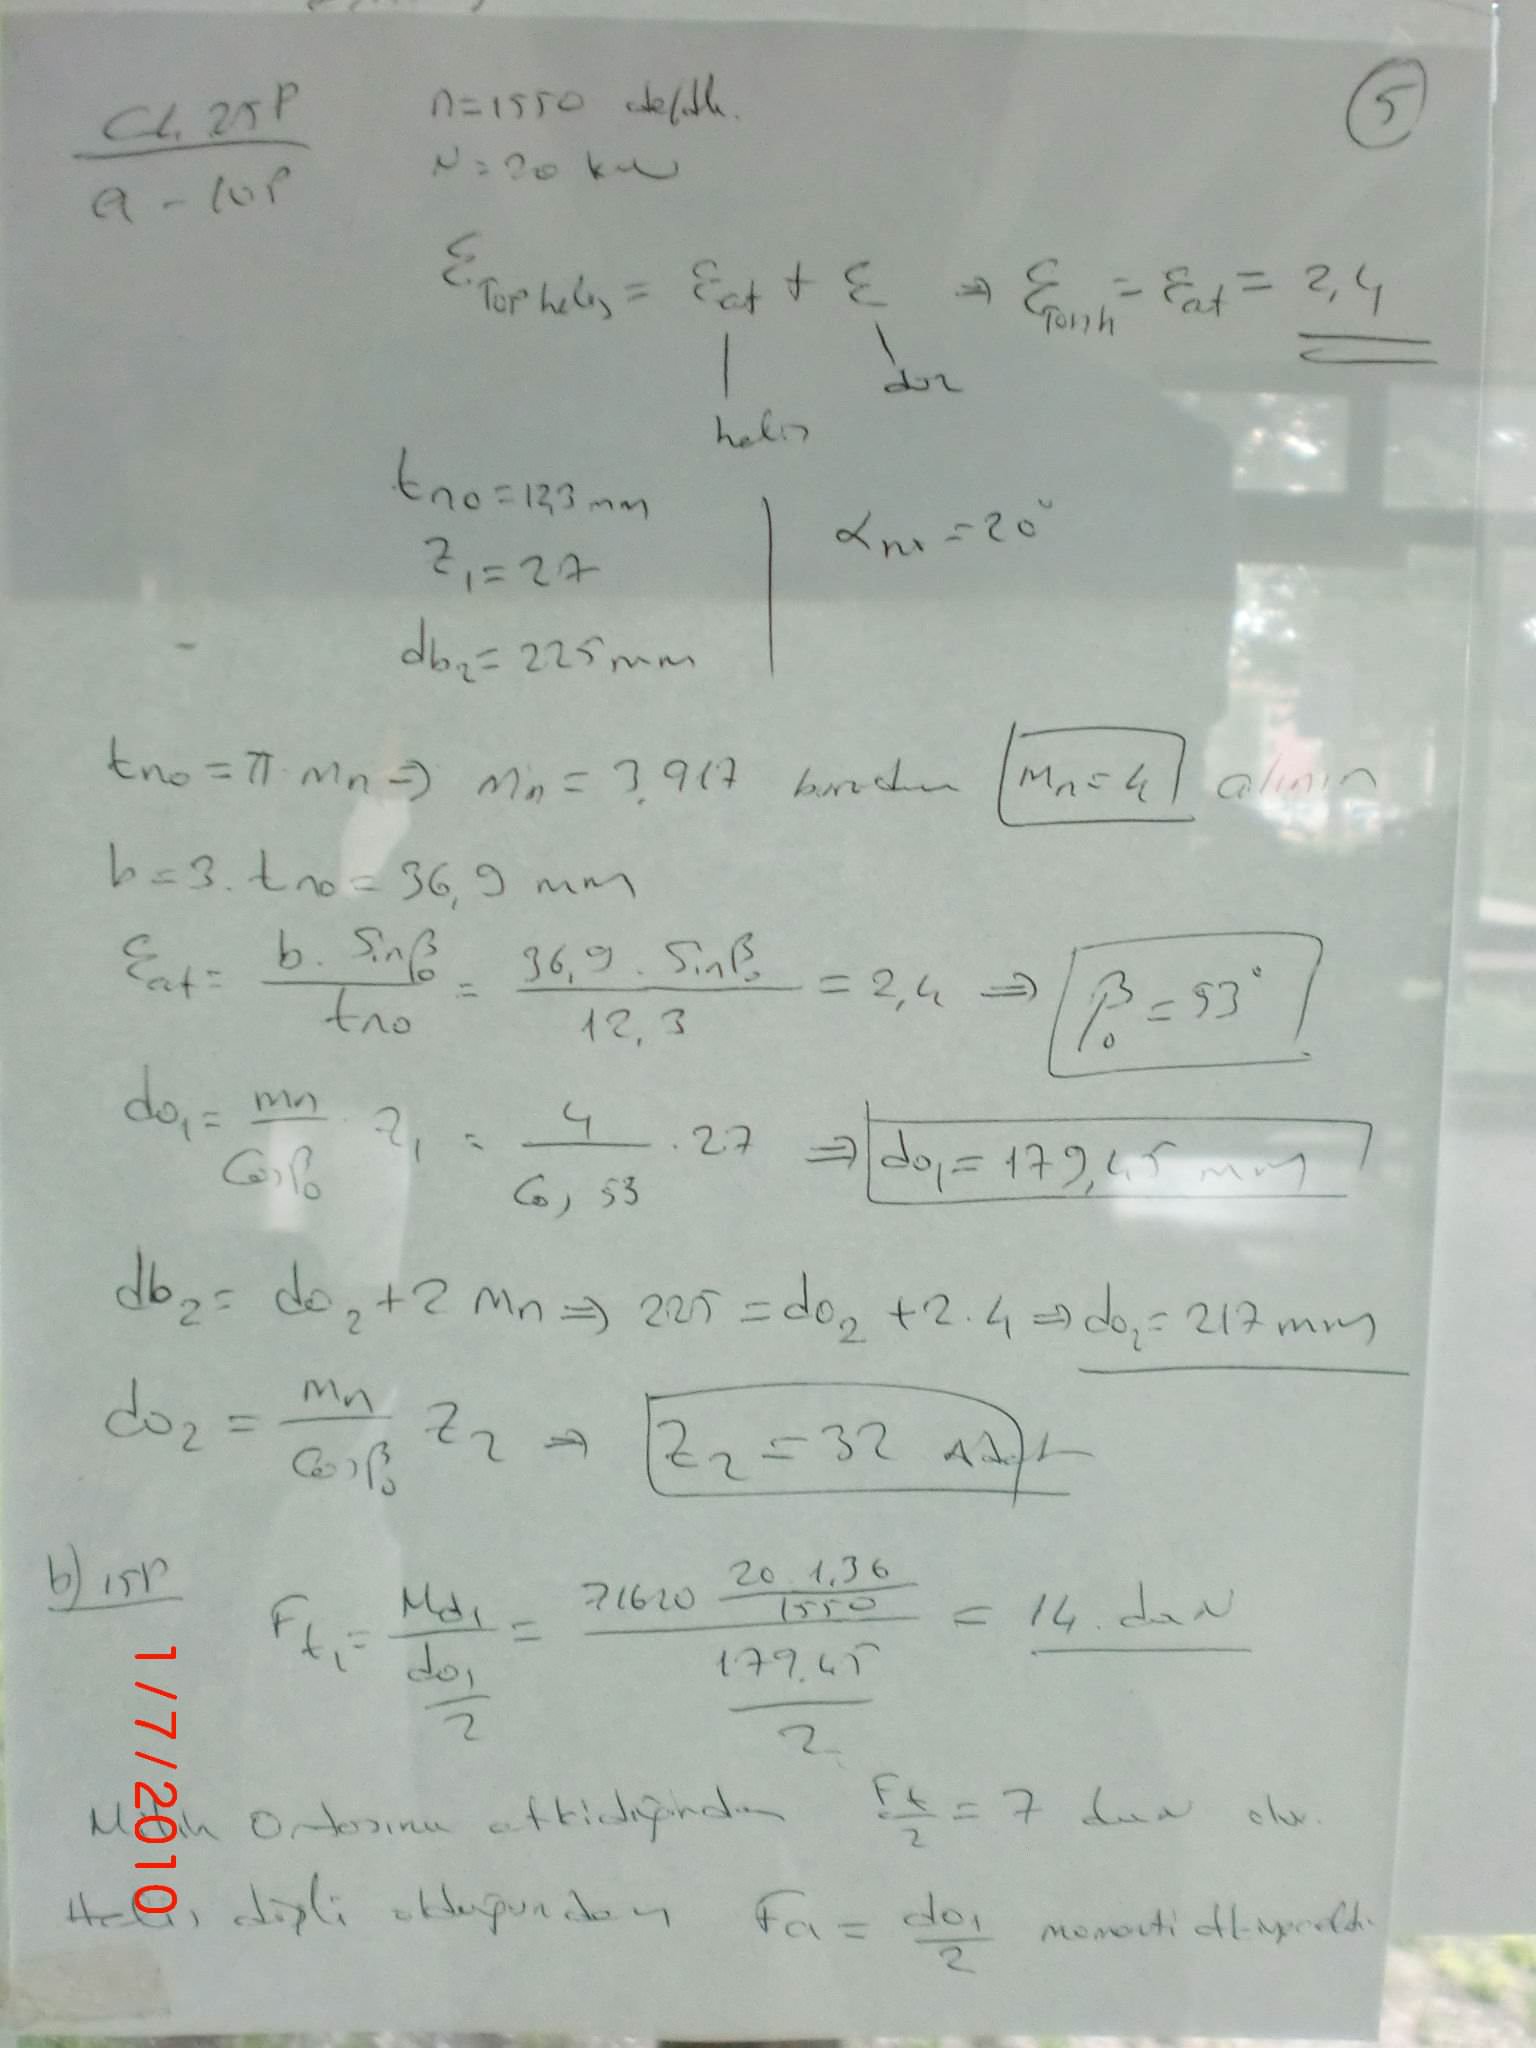 C4. 25P
a - 10P
n=1550 de/dk.
N=20 kw
5
ε Top helis = εat + ε ⇒ ε Top h = εat = 2,4
helis
düz
tno=12,3 mm
z1=27
db2=225mm
αno=20°
tno=π.mn ⇒ mn=3,917 buradan mn=4 alınır
b=3.tno=36,9 mm
εat= b.Sinβo / tno = 36,9.Sinβo / 12,3 = 2,4 ⇒ βo=53°
do1= mn / Cosβo . z1 = 4 / Cos 53 .27 ⇒ do1=179,45 mm
db2= do2+2 mn ⇒ 225=do2+2.4 ⇒ do2=217mm
do2 = mn / Cosβo z2 ⇒ z2=32 Adet
b) 15P
Ft1= Md1 / do1/2 = 71620 20.1,36/1550 / 179,45/2 = 14.daN
Ortasına etkidiğinden Ft/2 = 7 daN olur.
Helis dişli olduğundan Fa = do1/2 momenti
1/7/2010